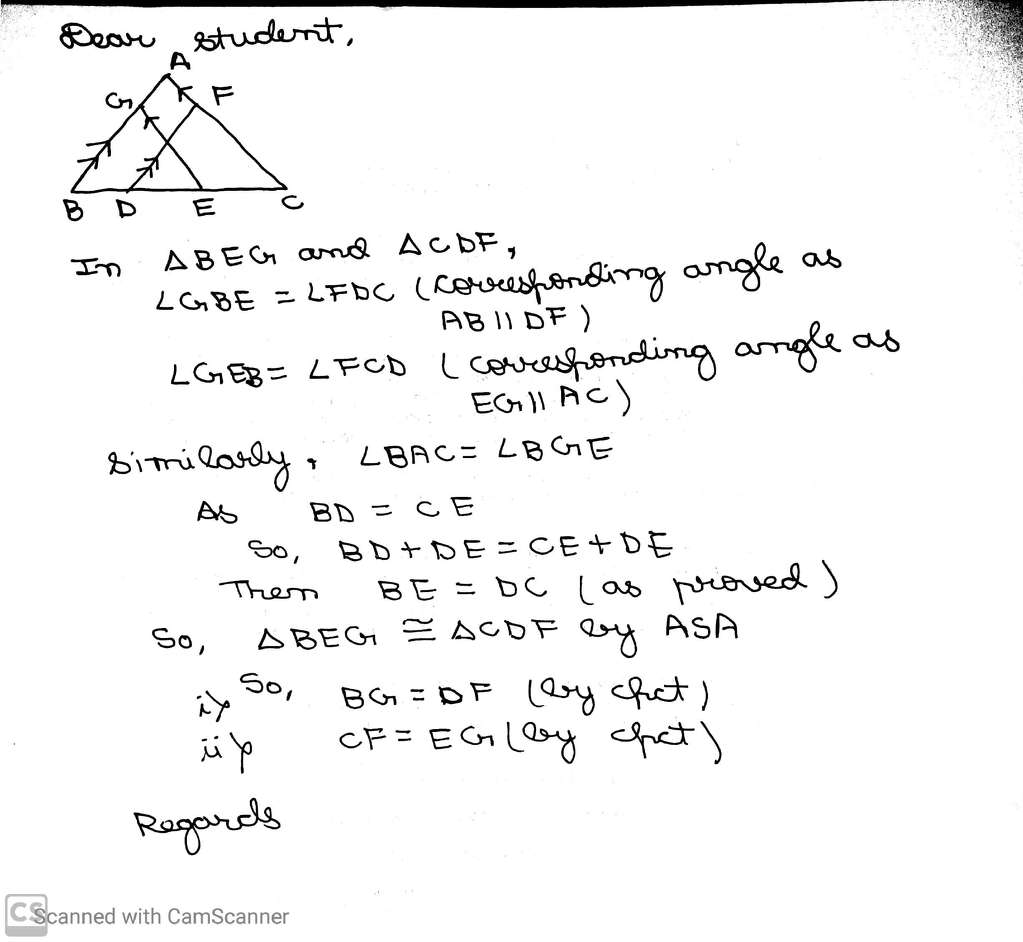 Dear student,
A
G F
B D E C
In ΔBEG and ΔCDF,
∠GBE = ∠FDC (corresponding angle as
AB || DF)
∠GEB = ∠FCD (corresponding angle as
EG || AC)
Similarly, ∠BAC = ∠BGE
As BD = CE
So, BD + DE = CE + DE
Then BE = DC (as proved)
So, ΔBEG ≅ ΔCDF by ASA
i) So, BG = DF (by cpct)
ii) CF = EG (by cpct)
Regards
CS Scanned with CamScanner